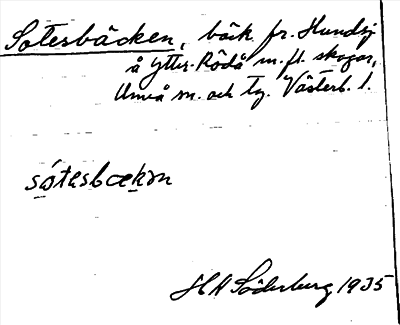 Sotesbäcken, bäck fr. Hundsj
å Ytter-Rödå m. fl. skogar,
Umeå sn. och tg. Västerb. l.
sótesbækən
HH Söderburg 1935